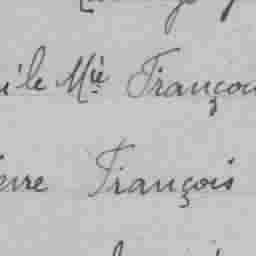 ile Mie Françoi
erre François